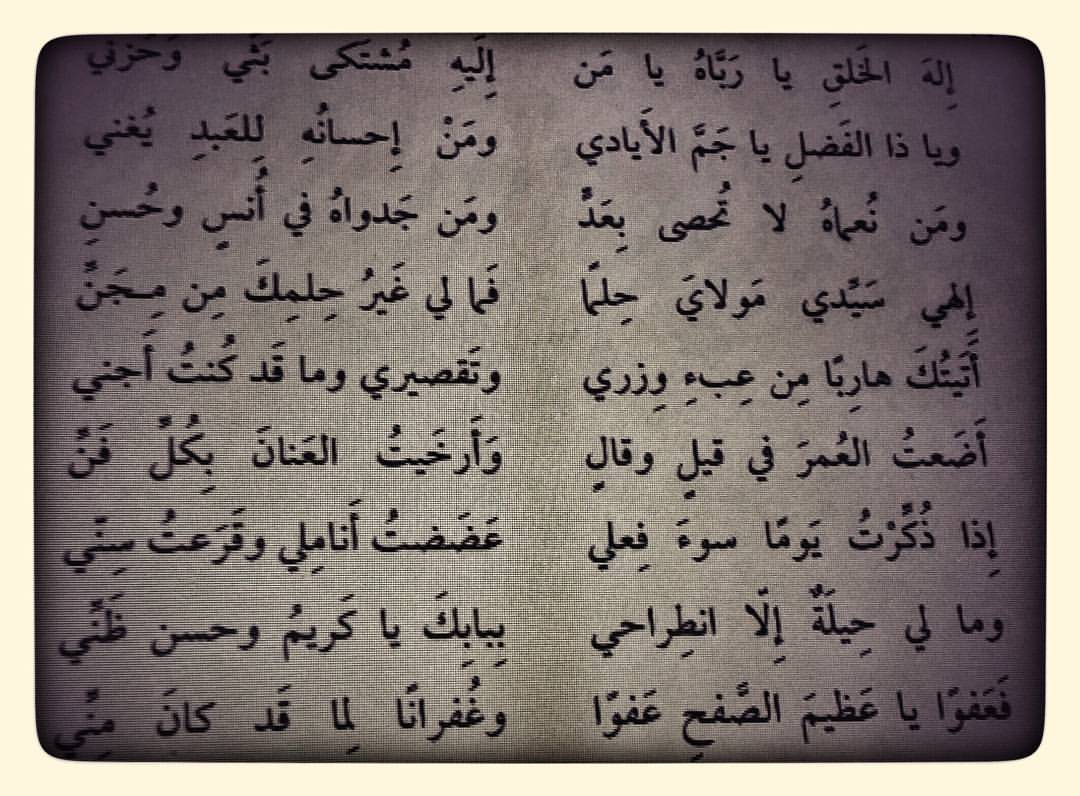 إِلهَ الخَلقِ يا رَبَّاهُ يا مَن إِلَيهِ مُشتَكى بَثّي وَحُزني
ويا ذا الفَضلِ يا جَمَّ الأَيادي ومَنْ إِحسانُهِ لِلعَبدِ يُغني
ومَن نُعماهُ لا تُحصى بِعَدٍّ ومَن جَدواهُ في أُنسٍ وحُسنِ
إِلهي سَيِّدي مَولايَ حِلمًا فَما لي غَيرُ حِلمِكَ مِن مِـجَنِّ
أَتَيتُكَ هارِبًا مِن عِبءِ وِزري وتَقصيري وما قَد كُنتُ أَجني
أَضَعتُ العُمرَ في قيلٍ وقالٍ وَأَرخَيتُ العَنانَ بِكُلِّ فَنِّ
إِذا ذُكِّرْتُ يَومًا سوءَ فِعلي عَضَضتُ أَنامِلي وقَرَعتُ سِنّي
وما لي حِيلَةٌ إِلّا انطِراحي بِبابِكَ يا كَريمُ وحسن ظَنّي
فَعَفوًا يا عَظيمَ الصَّفحِ عَفوًا وغُفرانًا لِما قَد كانَ مِنّي